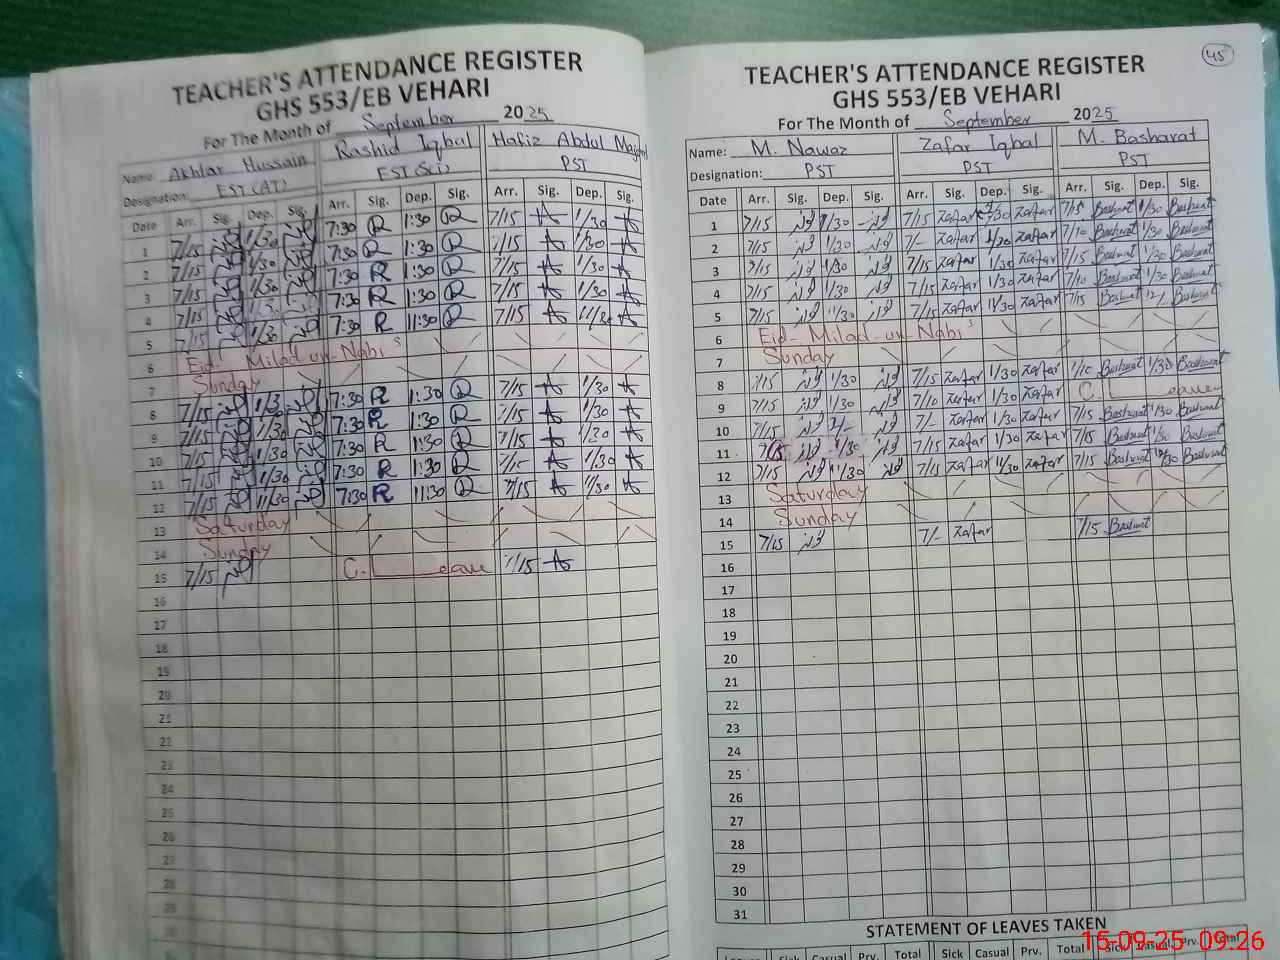 TEACHER'S ATTENDANCE REGISTER
GHS 553/EB VEHARI
For The Month of September 2025
Name: Akhtar Hussain Rashid Iqbal Hafiz Abdul Majeed
Designation: EST(AT) EST(Sci) PST
Date Arr. Sig. Dep. Sig. Arr. Sig. Dep. Sig. Arr. Sig. Dep. Sig.
1 7/15 1/30 7:30 R 1:30 R 7/15 A 1/30 A
2 7/15 1/30 7:30 R 1:30 R 7/15 A 1/30 A
3 7/15 1/30 7:30 R 1:30 R 7/15 A 1/30 A
4 7/15 1/30 7:30 R 1:30 R 7/15 A 1/30 A
5 7/15 7:30 R 11:30 R 7/15 A 11/30 A
6 Eid Milad un-Nabi s
7 Sunday
8 7/15 1/30 7:30 R 1:30 R 7/15 A 1/30 A
9 7/15 1/30 7:30 R 1:30 R 7/15 A 1/30 A
10 7/15 1/30 7:30 R 1:30 R 7/15 A 1/30 A
11 7/15 1/30 7:30 R 1:30 R 7/15 A 1/30 A
12 7/15 11/30 7:30 R 11:30 R 7/15 A 11/30 A
13 Saturday
14 Sunday
15 7/15 C. Leave 7/15 A
16
17
18
19
20
21
22
23
24
25
26
27
28
29
45
TEACHER'S ATTENDANCE REGISTER
GHS 553/EB VEHARI
For The Month of September 2025
Name: M. Nawaz Zafar Iqbal M. Basharat
Designation: PST PST PST
Date Arr. Sig. Dep. Sig. Arr. Sig. Dep. Sig. Arr. Sig. Dep. Sig.
1 7/15 نواز 1/30 نواز 7/15 Zafar 1/30 Zafar 7/15 Basharat 1/30 Basharat
2 7/15 نواز 1/30 نواز 7/- Zafar 1/30 Zafar 7/10 Basharat 1/30 Basharat
3 7/15 نواز 1/30 نواز 7/15 Zafar 1/30 Zafar 7/15 Basharat 1/30 Basharat
4 7/15 نواز 1/30 نواز 7/15 Zafar 1/30 Zafar 7/10 Basharat 1/30 Basharat
5 7/15 نواز 11/30 نواز 7/15 Zafar 11/30 Zafar 7/15 Basharat 12/- Basharat
6 Eid Milad un-Nabi s
7 Sunday
8 7/15 نواز 1/30 نواز 7/15 Zafar 1/30 Zafar Basharat 1/30 Basharat
9 7/15 نواز 1/30 نواز 7/10 Zafar 1/30 Zafar C. Leave
10 7/15 نواز نواز 7/- Zafar 1/30 Zafar 7/15 Basharat 1/30 Basharat
11 7/15 نواز 1/30 نواز 7/15 Zafar 1/30 Zafar 7/15 Basharat 1/30 Basharat
12 7/15 نواز 11/30 نواز 7/15 Zafar 11/30 Zafar 7/15 Basharat Basharat
13 Saturday
14 Sunday
15 7/15 نواز 7/- Zafar 7/15 Basharat
16
17
18
19
20
21
22
23
24
25
26
27
28
29
30
31
STATEMENT OF LEAVES TAKEN
Sick Casual Prv. Total Sick Casual Prv. Total Sick Casual Prv. Total
15-09-25 09:26